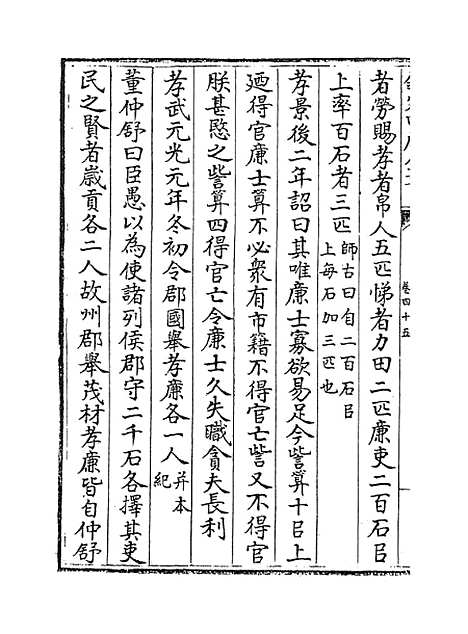 卷四十五
者勞賜孝者帛人五匹悌者力田二匹廉吏二百石㠯
上率百石者三匹師古曰自二百石㠯上每石加三匹也
孝景後二年詔曰其唯廉士寡欲易足今訾算十㠯上
廼得官廉士算不必衆有市籍不得官亡訾又不得官
朕甚愍之訾算四得官亡令廉士久失職貪夫長利
孝武元光元年冬初令郡國舉孝廉各一人并本紀
董仲舒曰臣愚以為使諸列侯郡守二千石各擇其吏
民之賢者歲貢各二人故州郡舉茂材孝廉皆自仲舒